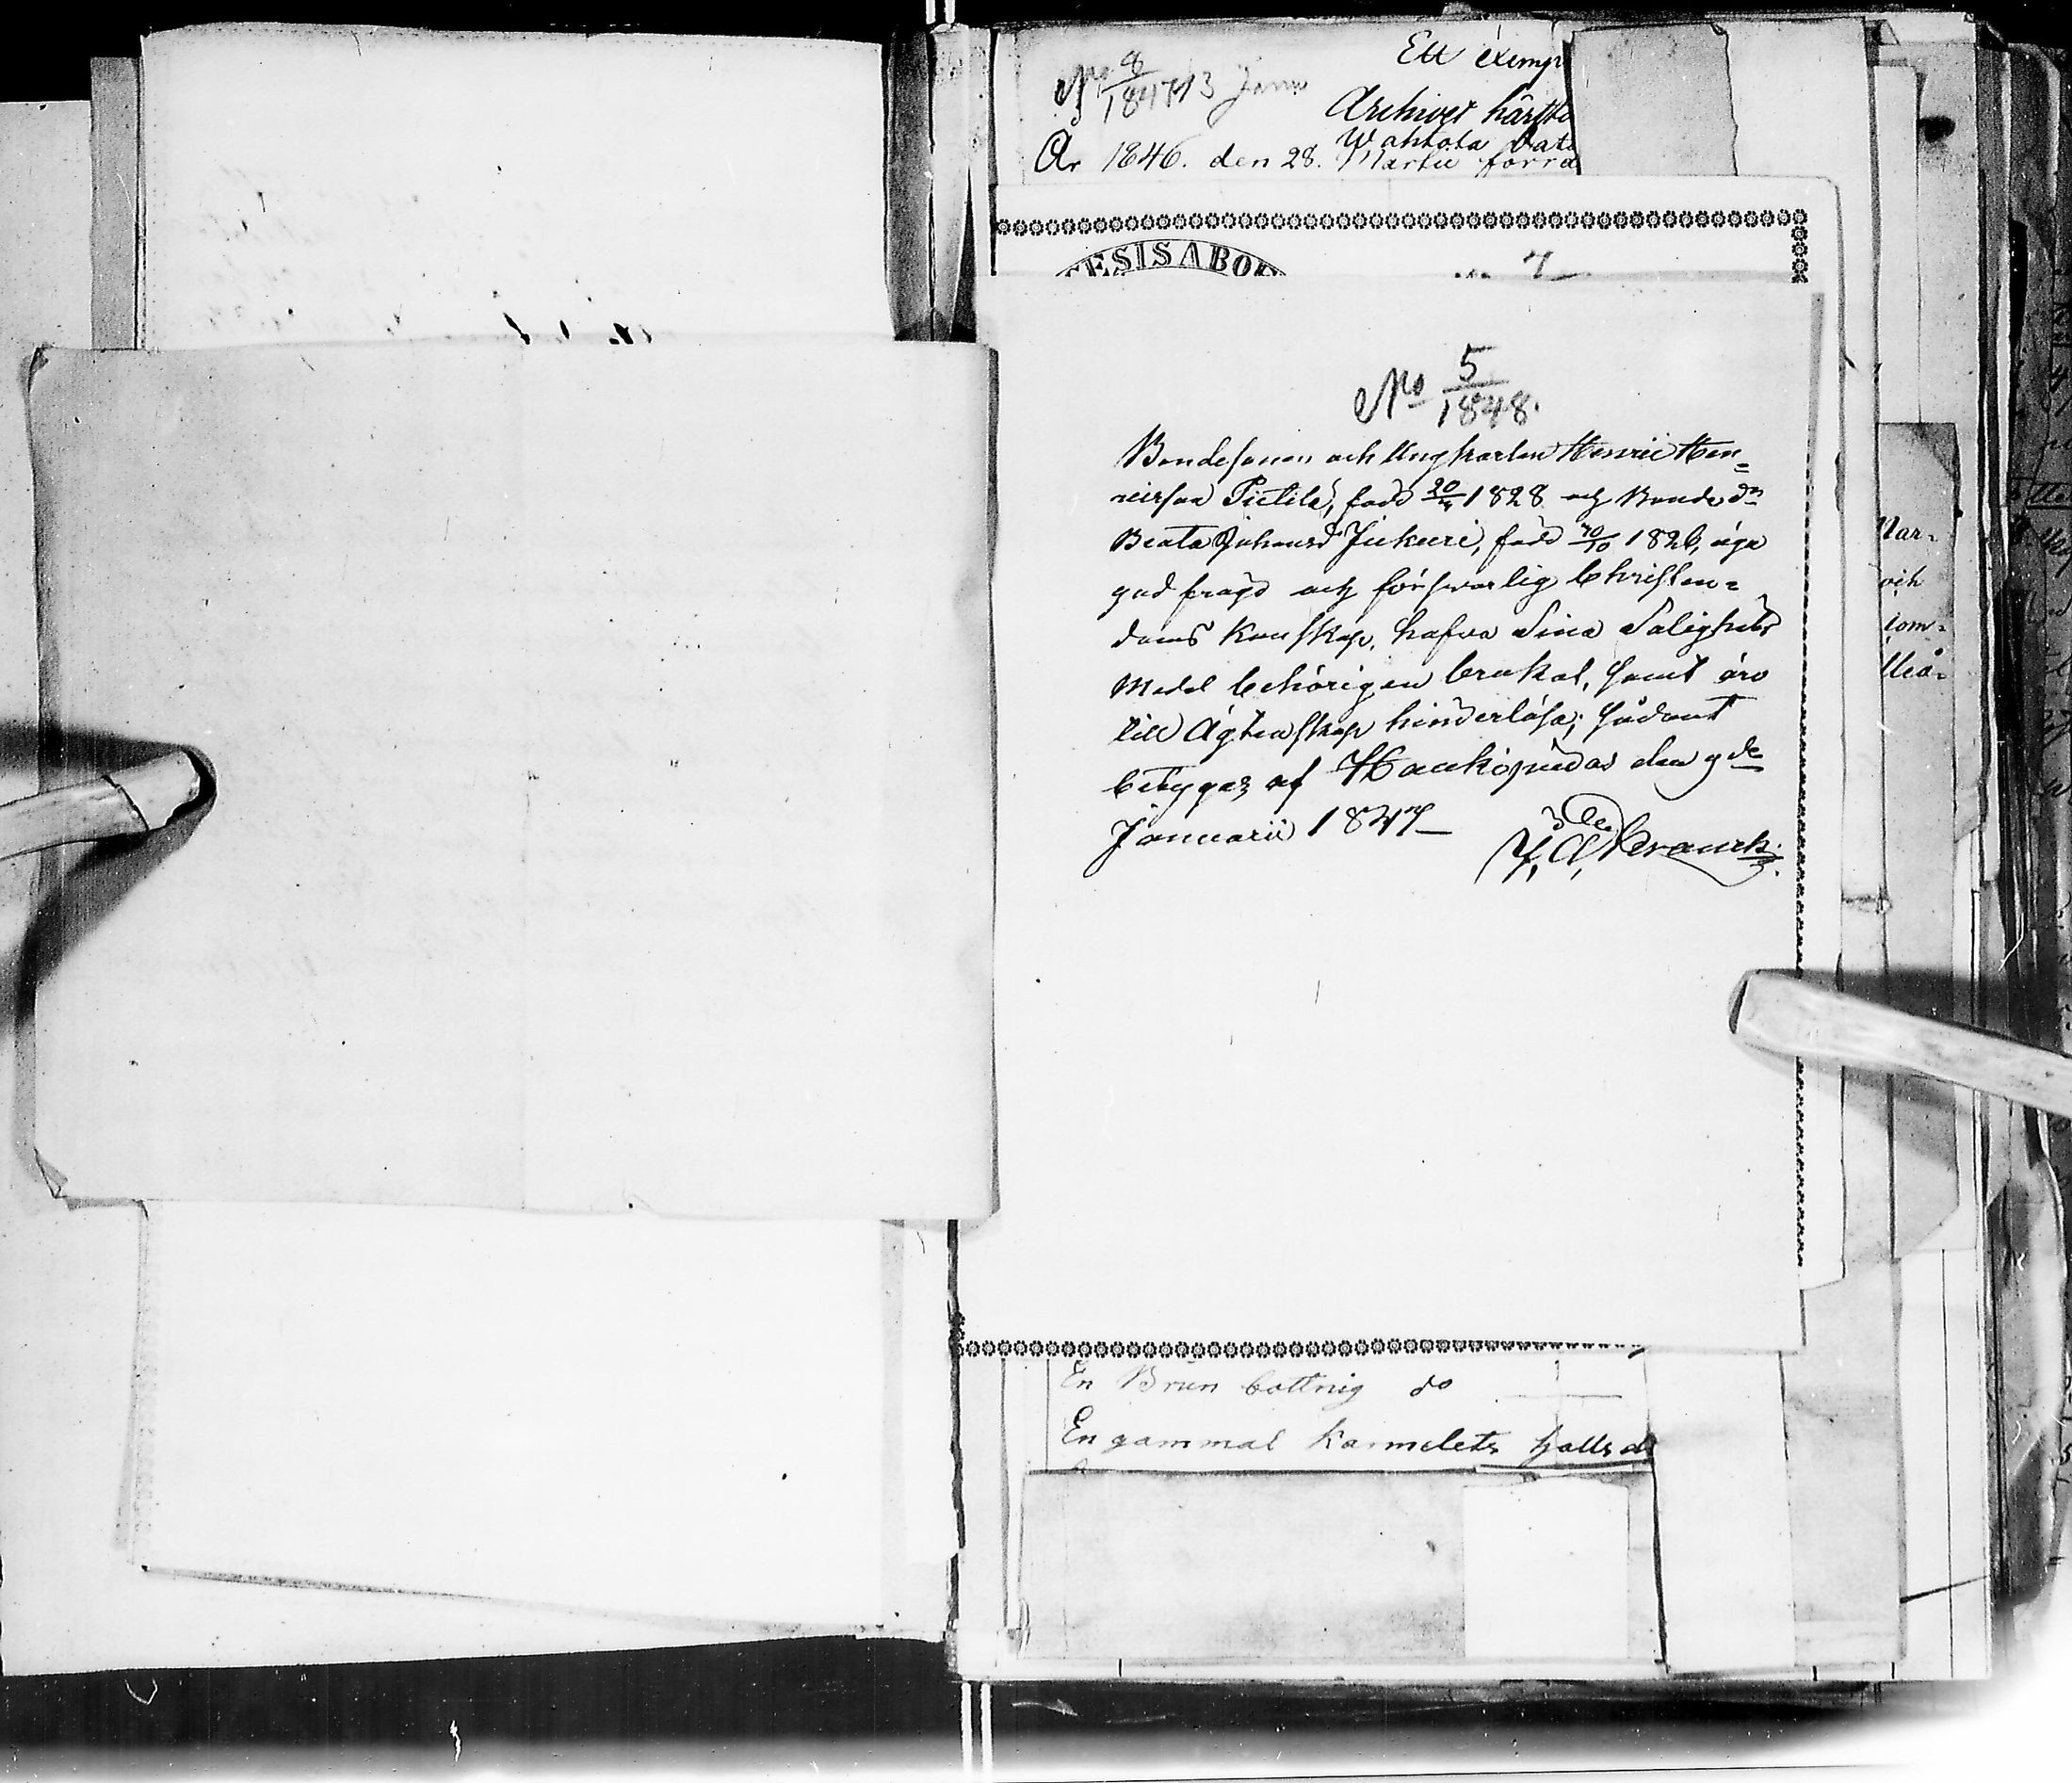 No 8/1847 13 Janu
Ett exemp
Archivet härsto
Wahtola Vats
År 1846. den 28. Martii förra
ESIS ABOE
7
No 5/1848.
Bondesonen och Ungkarlen Henric Hen=
ricsson Pietilä, född 20/4 1828 och Bonde dn
Beata Johansd Jukuri, född 30/10 1826, äga
god frägd och försvarlig Christen=
doms Kunskap, hafva Sina Salighets
Medel behörigen brukat, samt äro
till Ägtenskap hinderlösa; sådant
betygas af Haukipudas den 9de
Januarii 1847
J. A. Cranck.
En Brun bottnig do
En gammal Karmelets halls d
Nar=
och
iom=
lleå=